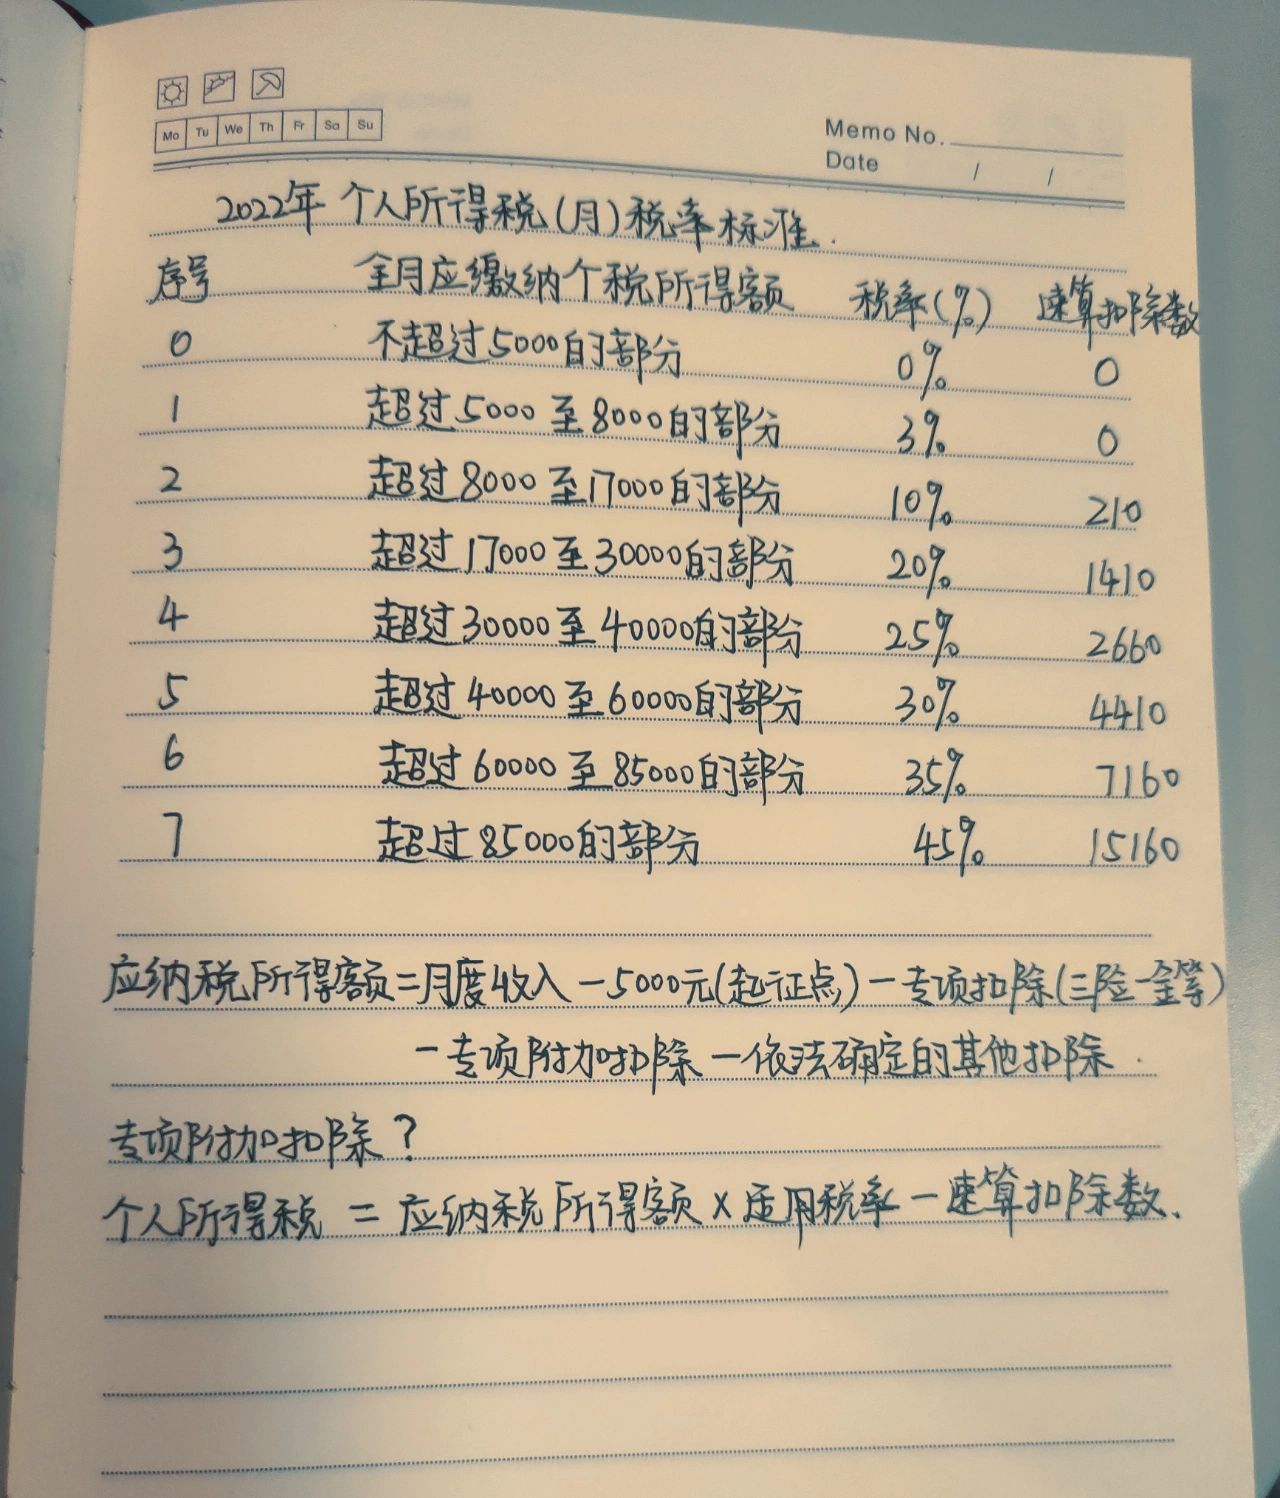 Mo Tu We Th Fr Sa Su
Memo No.
Date / /
2022年 个人所得税(月)税率标准.
序号 全月应缴纳个税所得额 税率(%) 速算扣除数
0 不超过5000的部分 0% 0
1 超过5000至8000的部分 3% 0
2 超过8000至17000的部分 10% 210
3 超过17000至30000的部分 20% 1410
4 超过30000至40000的部分 25% 2660
5 超过40000至60000的部分 30% 4410
6 超过60000至85000的部分 35% 7160
7 超过85000的部分 45% 15160
应纳税所得额=月度收入-5000元(起征点)-专项扣除(三险一金等)
-专项附加扣除-依法确定的其他扣除.
专项附加扣除?
个人所得税 = 应纳税所得额×适用税率-速算扣除数.